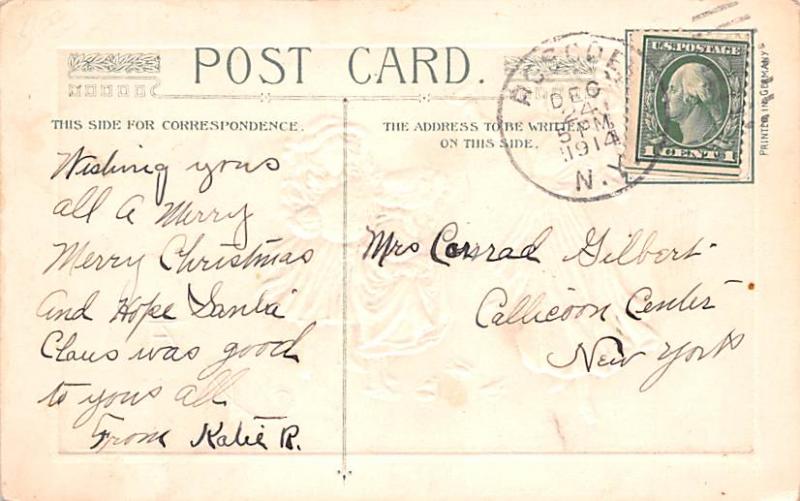 POST CARD.
THIS SIDE FOR CORRESPONDENCE.
THE ADDRESS TO BE WRITTEN
ON THIS SIDE.
ROSCOE
DEC
24
5 PM
1914
N.Y.
U.S. POSTAGE
1 CENT 1
PRINTED IN GERMANY
Wishing yous
all a Merry
Merry Christmas
and Hope Santa
Claus was good
to yous all
From Katie R.
Mrs Conrad Gilbert
Callicoon Center
New York